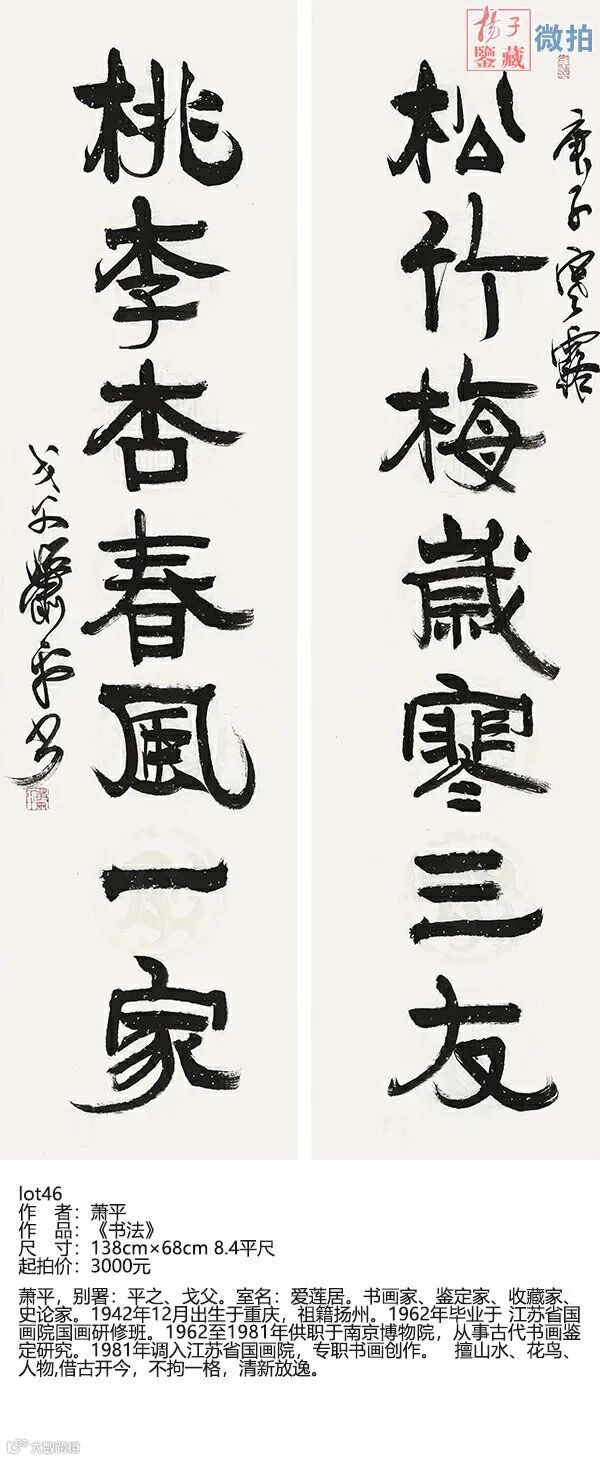 揚子
鑒藏
微拍
庚子寒露
松竹梅歲寒三友
桃李杏春風一家
戈父蕭平書
lot46
作 者：萧平
作 品：《书法》
尺 寸：138cm×68cm 8.4平尺
起拍价：3000元
萧平，别署：平之、戈父。室名：爱莲居。书画家、鉴定家、收藏家、
史论家。1942年12月出生于重庆，祖籍扬州。1962年毕业于 江苏省国
画院国画研修班。1962至1981年供职于南京博物院，从事古代书画鉴
定研究。1981年调入江苏省国画院，专职书画创作。 擅山水、花鸟、
人物,借古开今，不拘一格，清新放逸。
大欧跨境